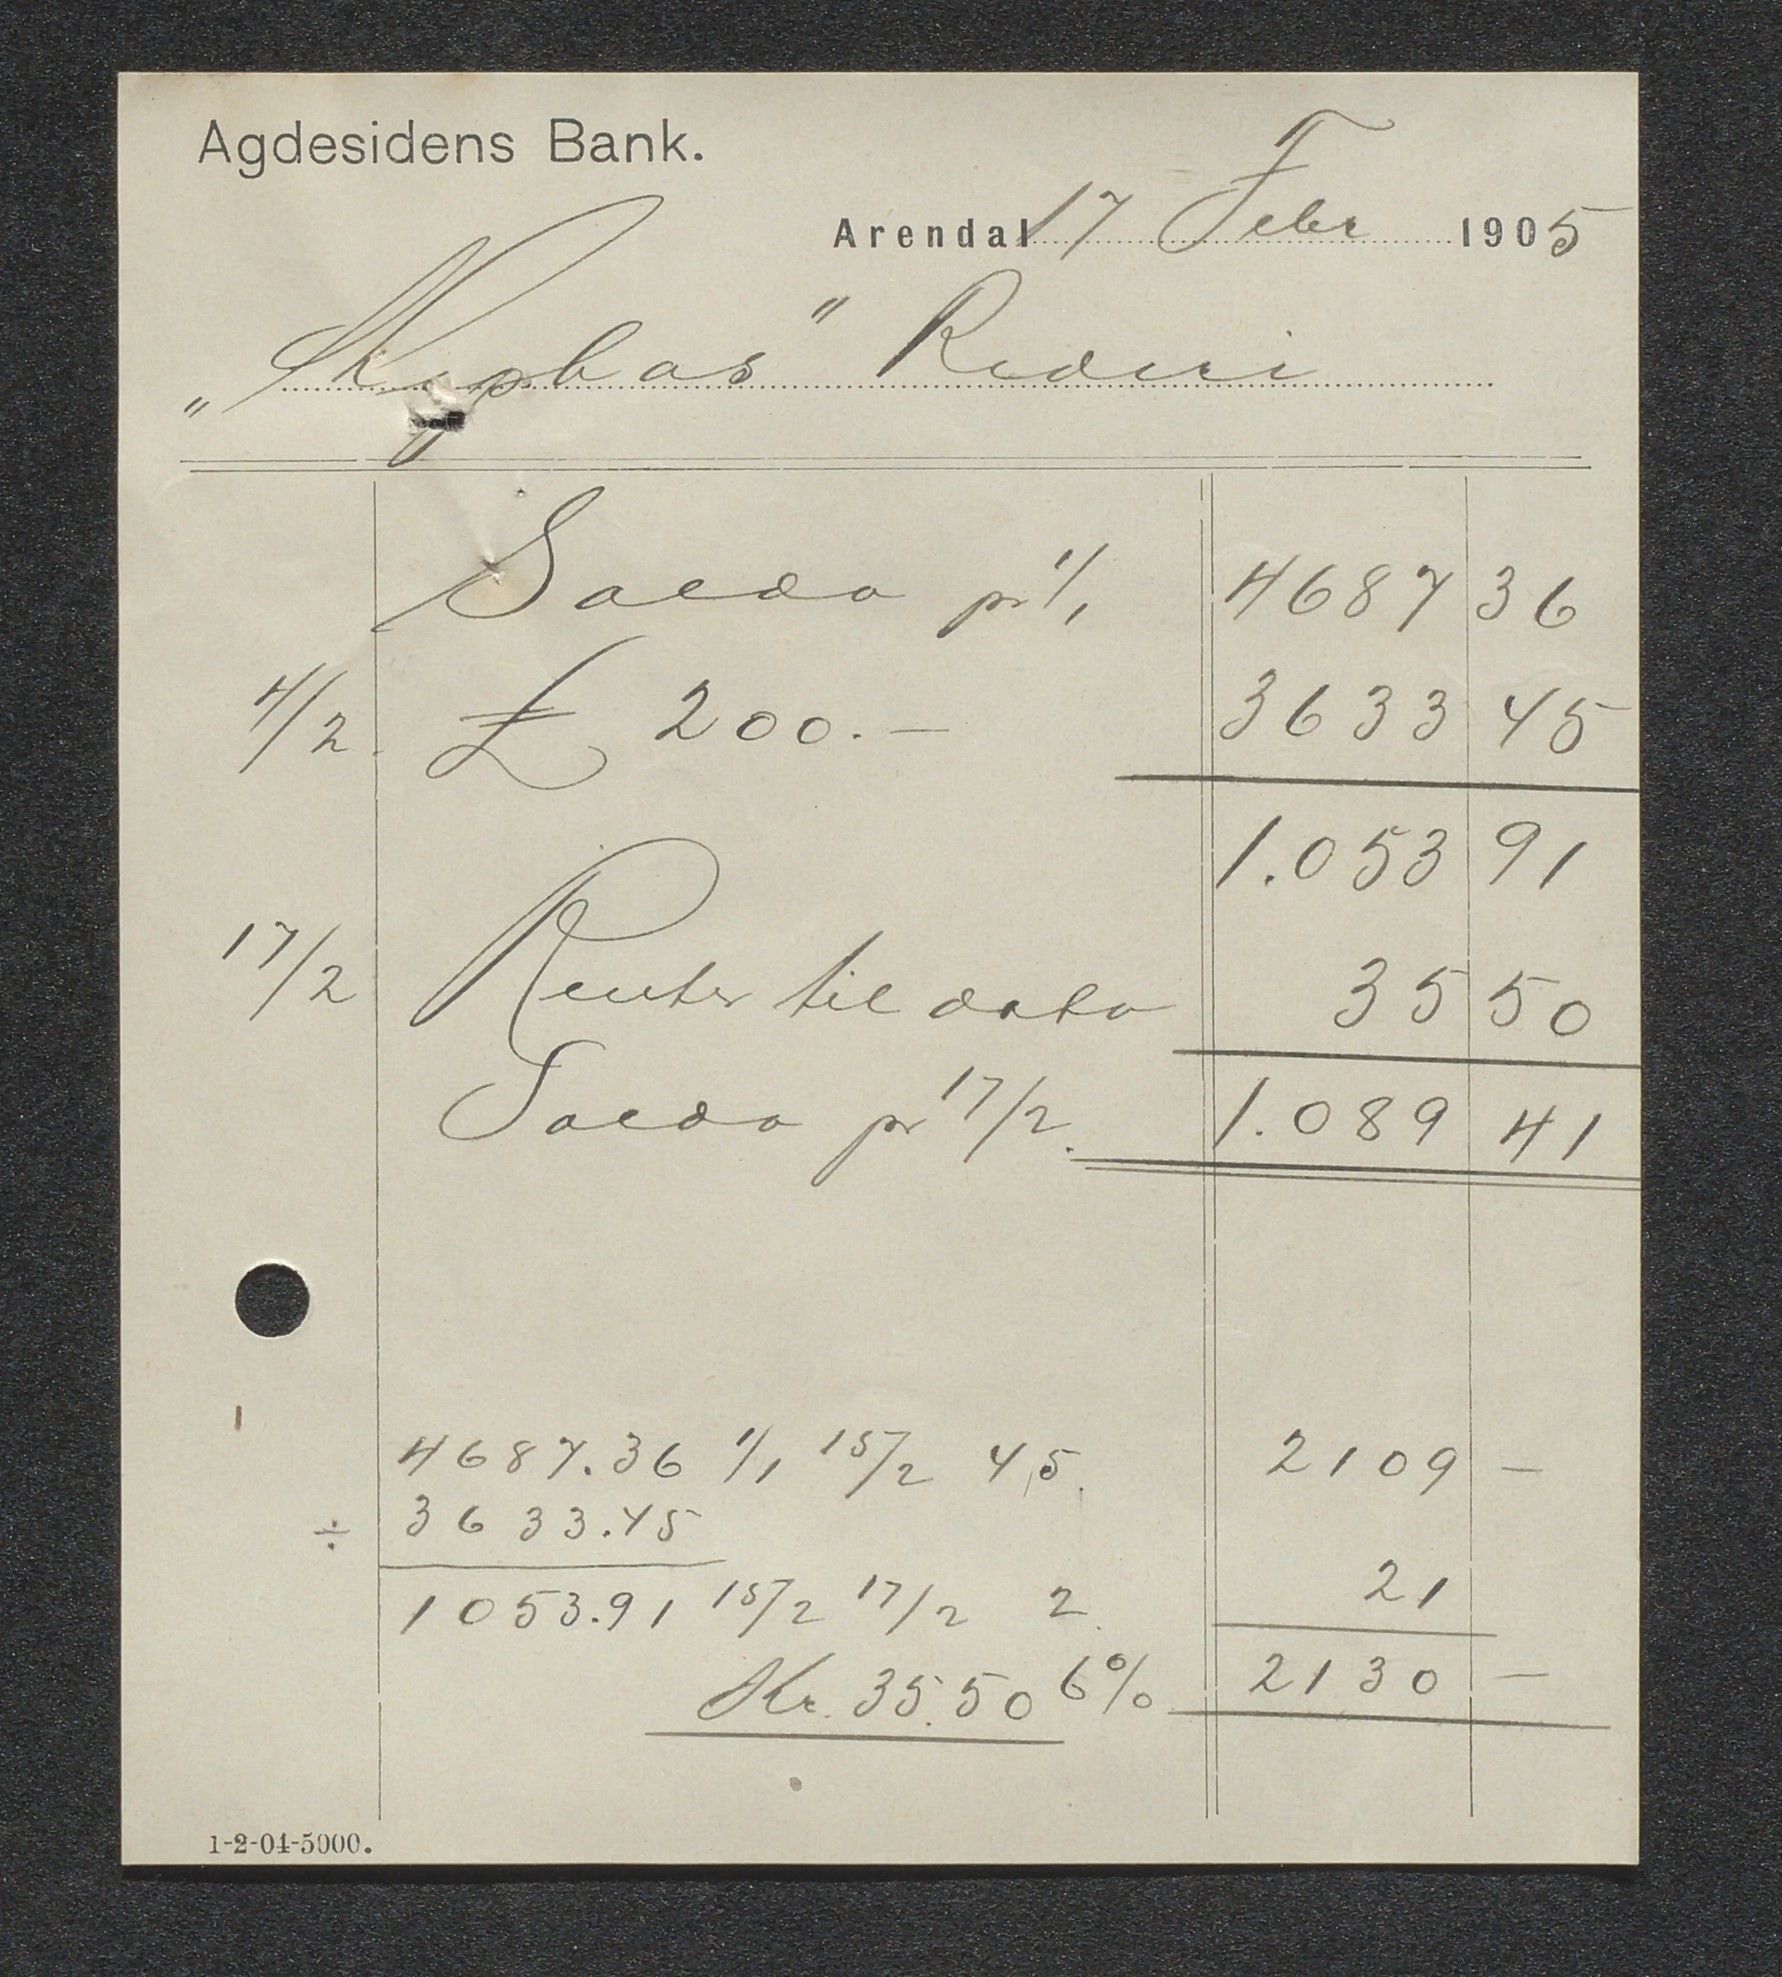 Agdesidens Bank.
Arendal 17 Febr 1905
" " Rederi
Saldo pr 1/1 4687 36
4/2 £ 200.— 3633 45
1.053 91
17/2 Renter til dato 35 50
Saldo pr 17/2. 1.089 41
4687.36 1/1 15/2 45. 2109 —
÷ 3633.45
1053.91 15/2 17/2 2 21
Kr. 35.50 6% 2130 —
1-2-04-5000.